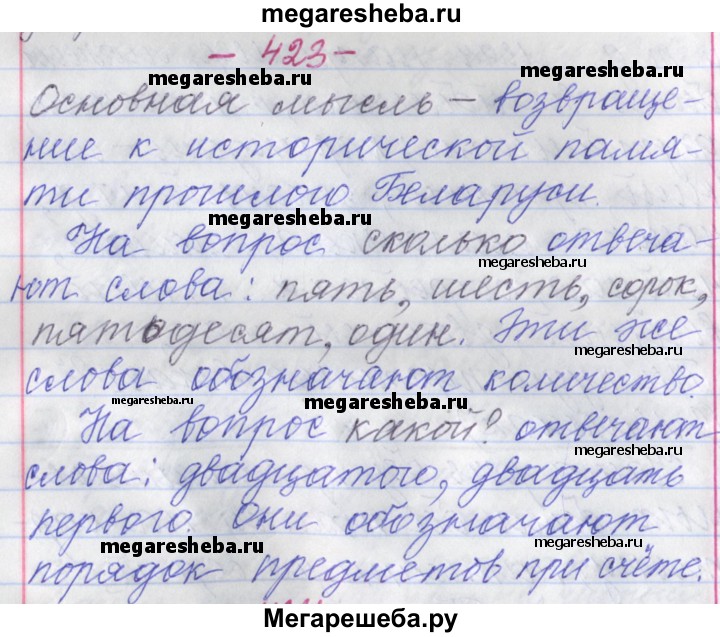 megaresheba.ru
- 423 -
megaresheba.ru megaresheba.ru
Основная мысль – возвраще-
ние к исторической памя-
ти прошлого Беларуси.
megaresheba.ru
На вопрос сколько отвеча-
megaresheba.ru
ют слова: пять, шесть, сорок,
пятьдесят, один. Эти же
megaresheba.ru
слова обозначают количество.
megaresheba.ru megaresheba.ru megaresheba.ru
На вопрос какой? отвечают
слова: двадцатого, двадцать
первого. Они обозначают
megaresheba.ru megaresheba.ru
порядок предметов при счёте.
Мегарешеба.ру